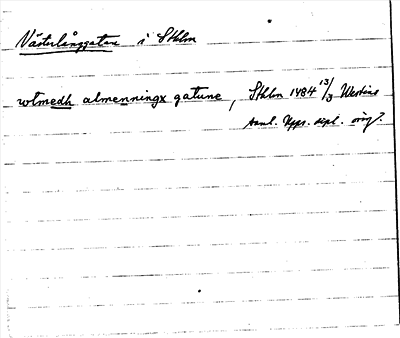 Västerlånggatan i Sthlm
wtmedh almenningx gatune, Sthlm 1484 13/3
saml. Upps. dipl. orig.